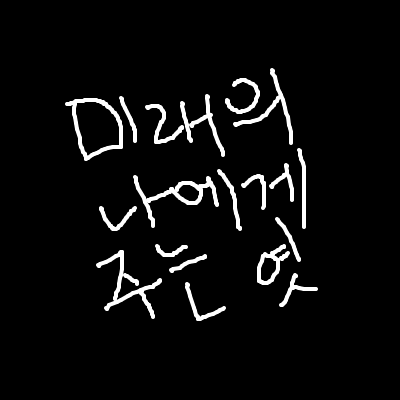 미래의
나에게
주는 엿